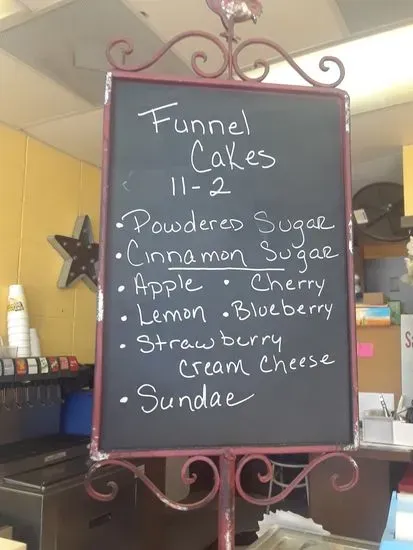 Funnel
Cakes
11-2
• Powdered Sugar
• Cinnamon Sugar
• Apple • Cherry
• Lemon • Blueberry
• Strawberry
cream cheese
• Sundae